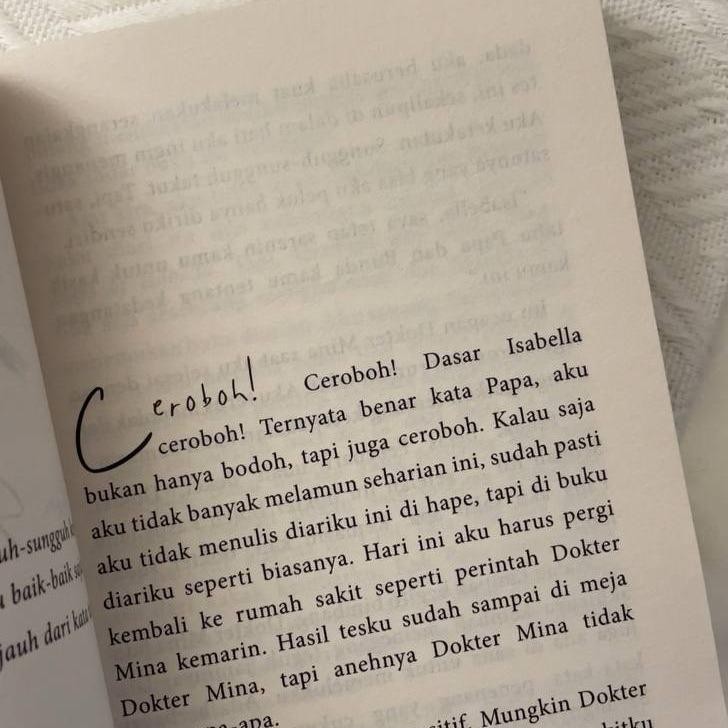 Ceroboh! Ceroboh! Dasar Isabella
ceroboh! Ternyata benar kata Papa, aku
bukan hanya bodoh, tapi juga ceroboh. Kalau saja
aku tidak banyak melamun seharian ini, sudah pasti
aku tidak menulis diariku ini di hape, tapi di buku
diariku seperti biasanya. Hari ini aku harus pergi
kembali ke rumah sakit seperti perintah Dokter
Mina kemarin. Hasil tesku sudah sampai di meja
Dokter Mina, tapi anehnya Dokter Mina tidak
Mungkin Dokter
uh-sungguh
baik-baik
jauh dari kata